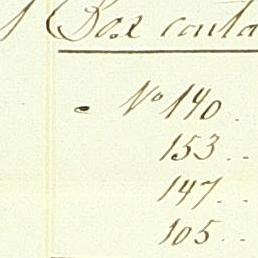 1 Box conta
" No 140 .
153 . .
147 . .
105 . .